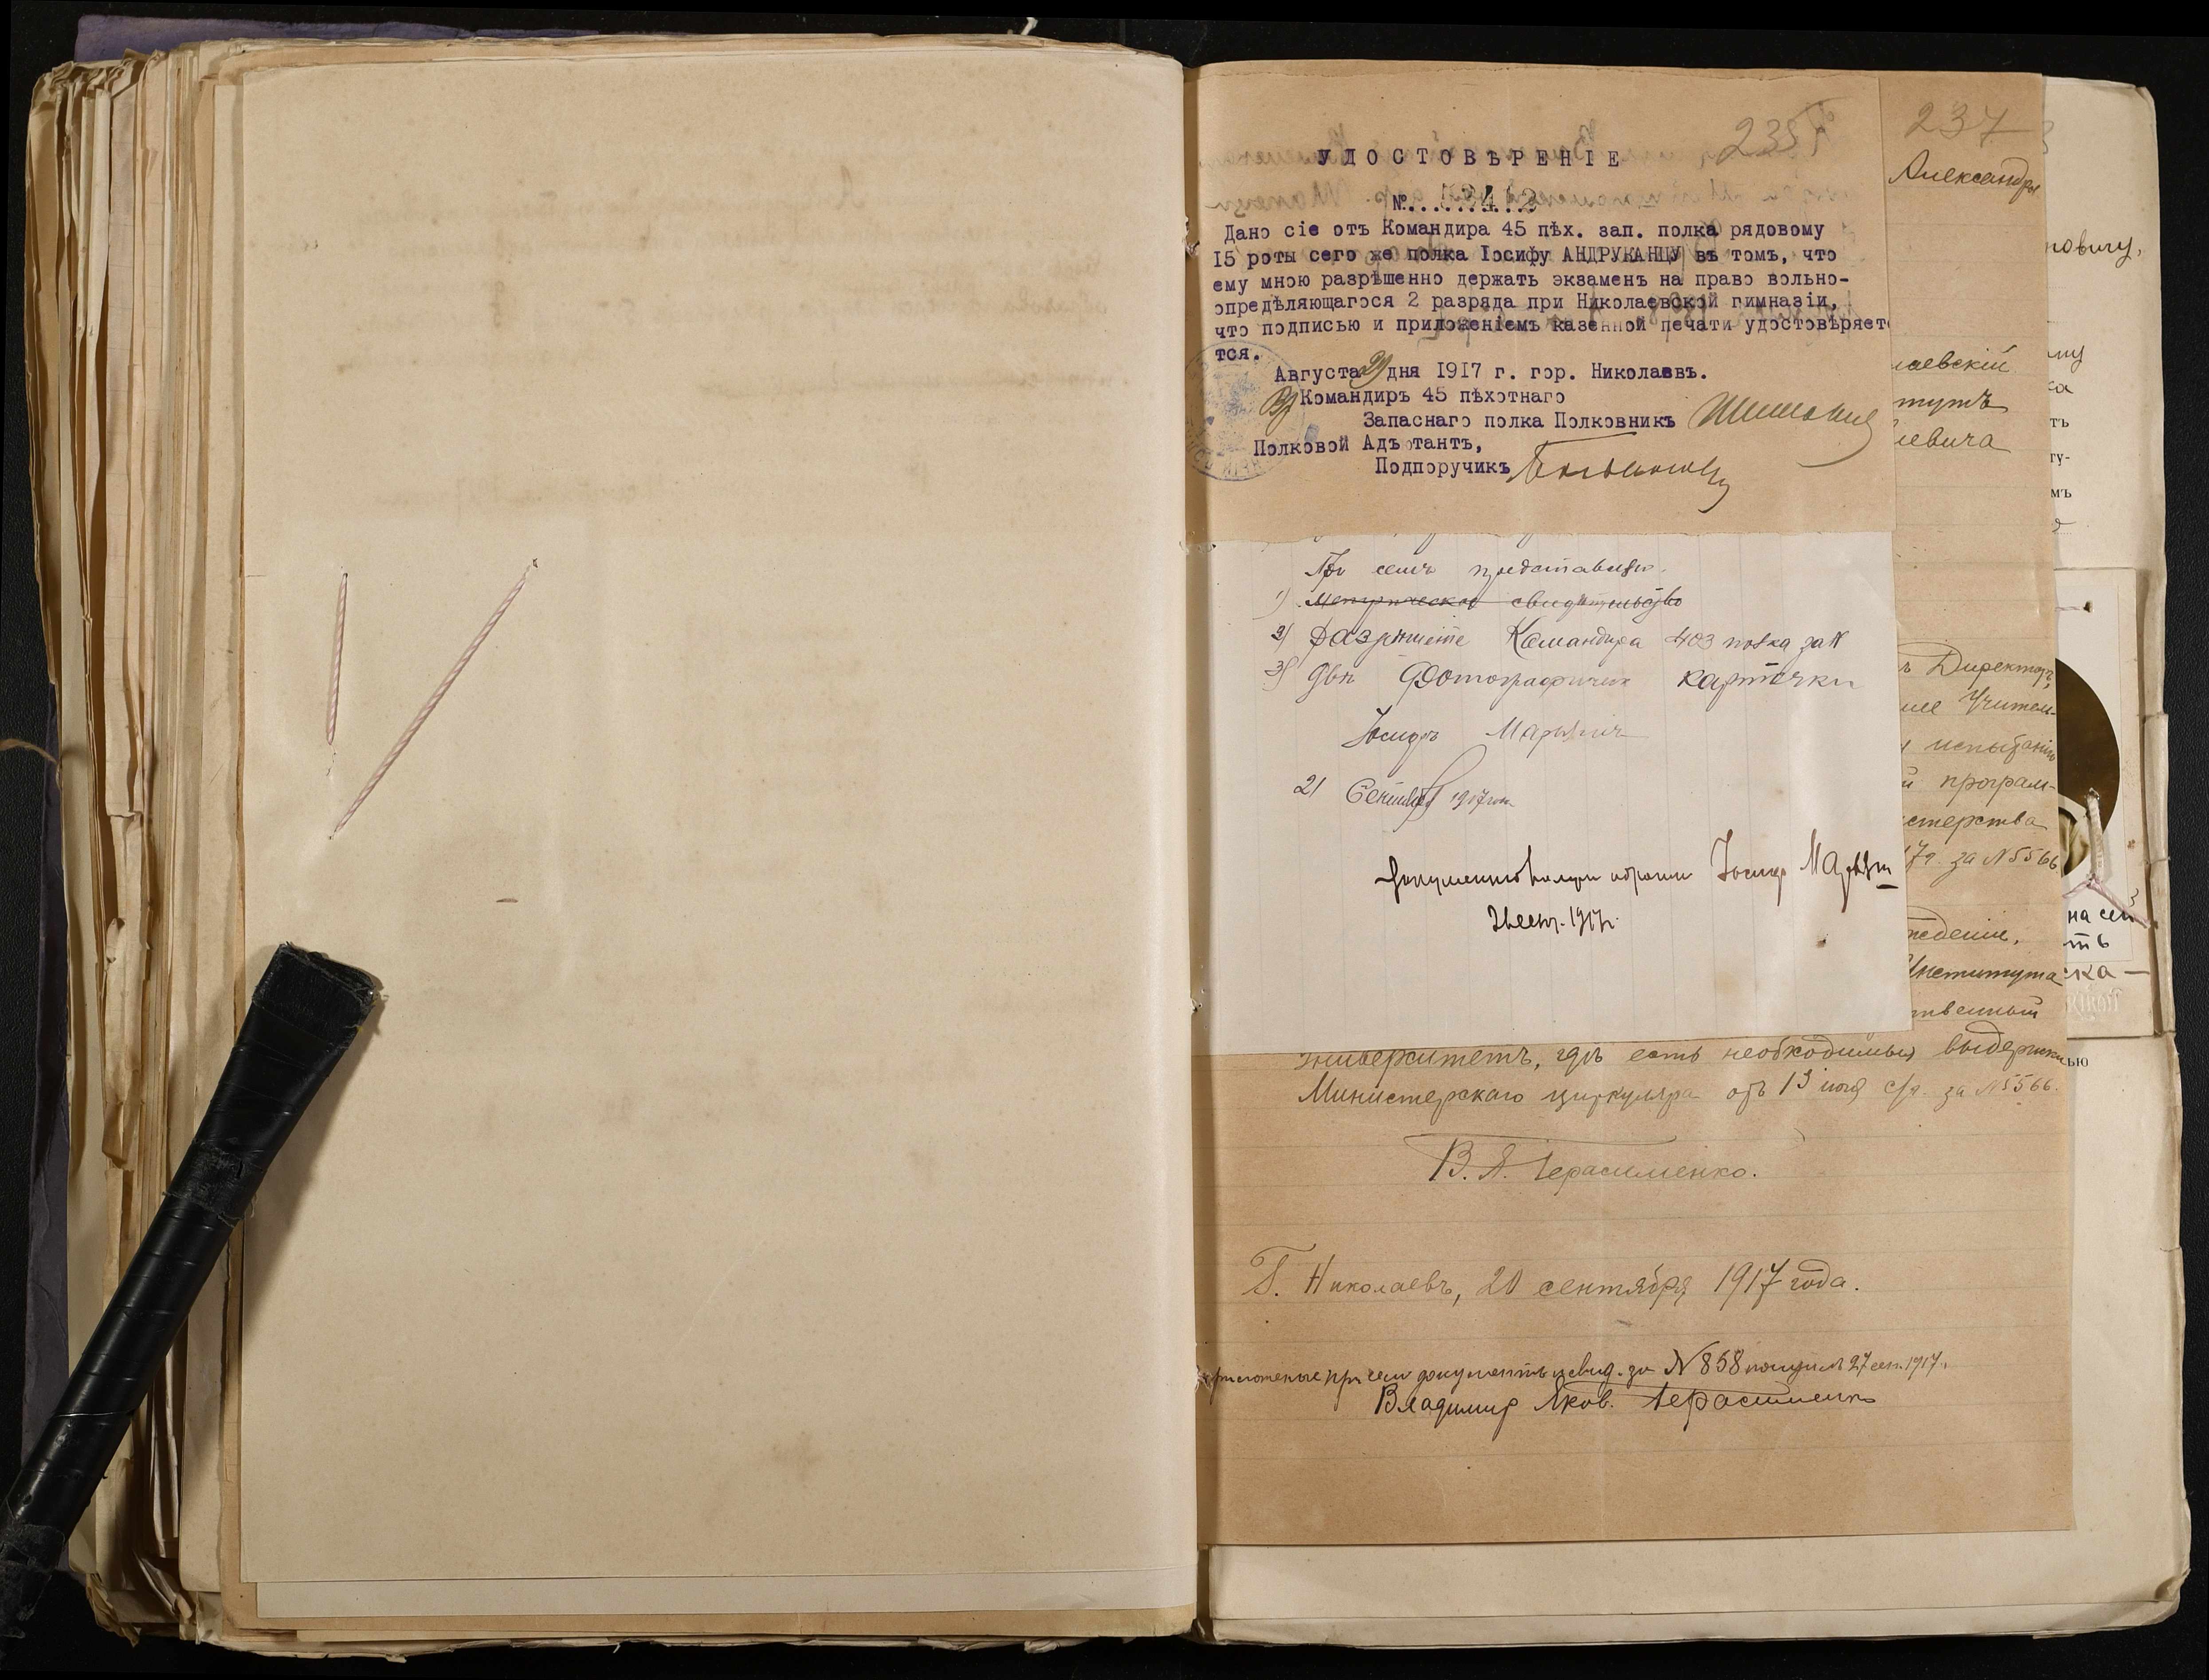 237
Александр
235
УДОСТОВѢРЕНІЕ
№
Дано сіе отъ Командира 45 пѣх. зап. полка рядовому
15 роты сего же полка Іосифу АНДРУКАНЦУ въ томъ, что
ему мною разрѣшенно держать экзаменъ на право вольно-
опредѣляющагося 2 разряда при Николаевской гимназіи,
что подписью и приложеніемъ казенной печати удостовѣряет
тся.
Августа 29 дня 1917 г. гор. Николаевъ.
Командиръ 45 пѣхотнаго
Запаснаго полка Полковникъ
Полковой Адъютантъ,
Подпоручикъ
новичу,
лаевскій
тутъ
евича
При семъ представляю
1) Метрическое свидѣтельство
2) Разрѣшеніе Командира 403 полка за №
3) Двѣ фотографическ карточки
Іосифъ
21 Сентября 1917
Іосиф
сент. 1917 г.
ъ Директоръ,
Учитель-
испытанію
й програм-
стерства
17г. за №5566
жденіи,
Института
твенный
на сей
ть
ска-
университетъ, гдѣ есть необходимыя выдержки
Министерскаго циркуляра отъ 13 іюля с/г. за №5566.
В. Я. Герасименко.
Г. Николаевъ, 20 сентября 1917 года.
приложеные при сем документы и свид. за №858 получилъ 27 сен. 1917 г.
Владимир Яков. Герасименко